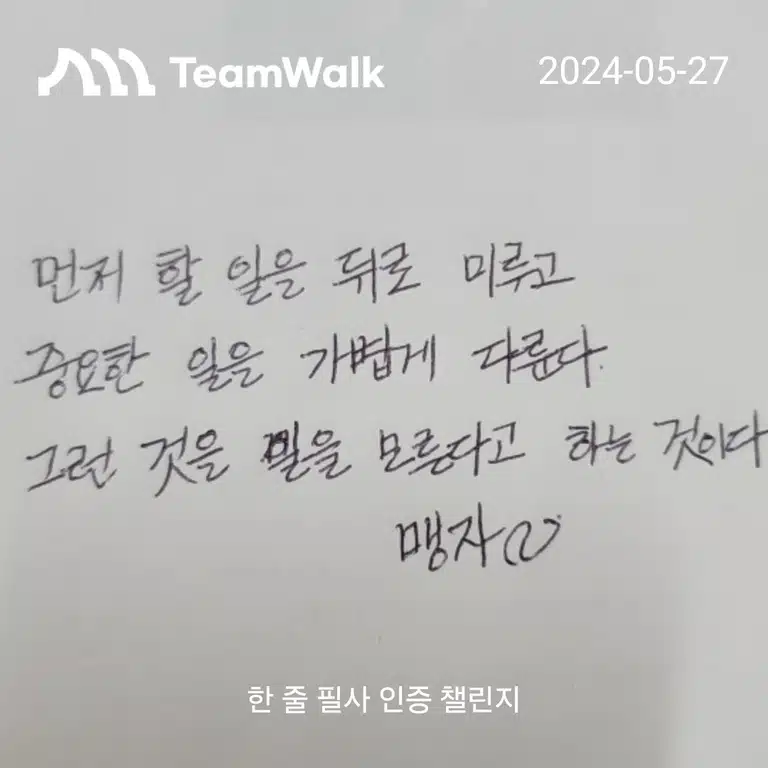 TeamWalk
2024-05-27
먼저 할 일을 뒤로 미루고
중요한 일을 가볍게 다룬다.
그런 것을 일을 모른다고 하는 것이다
맹자
한 줄 필사 인증 챌린지